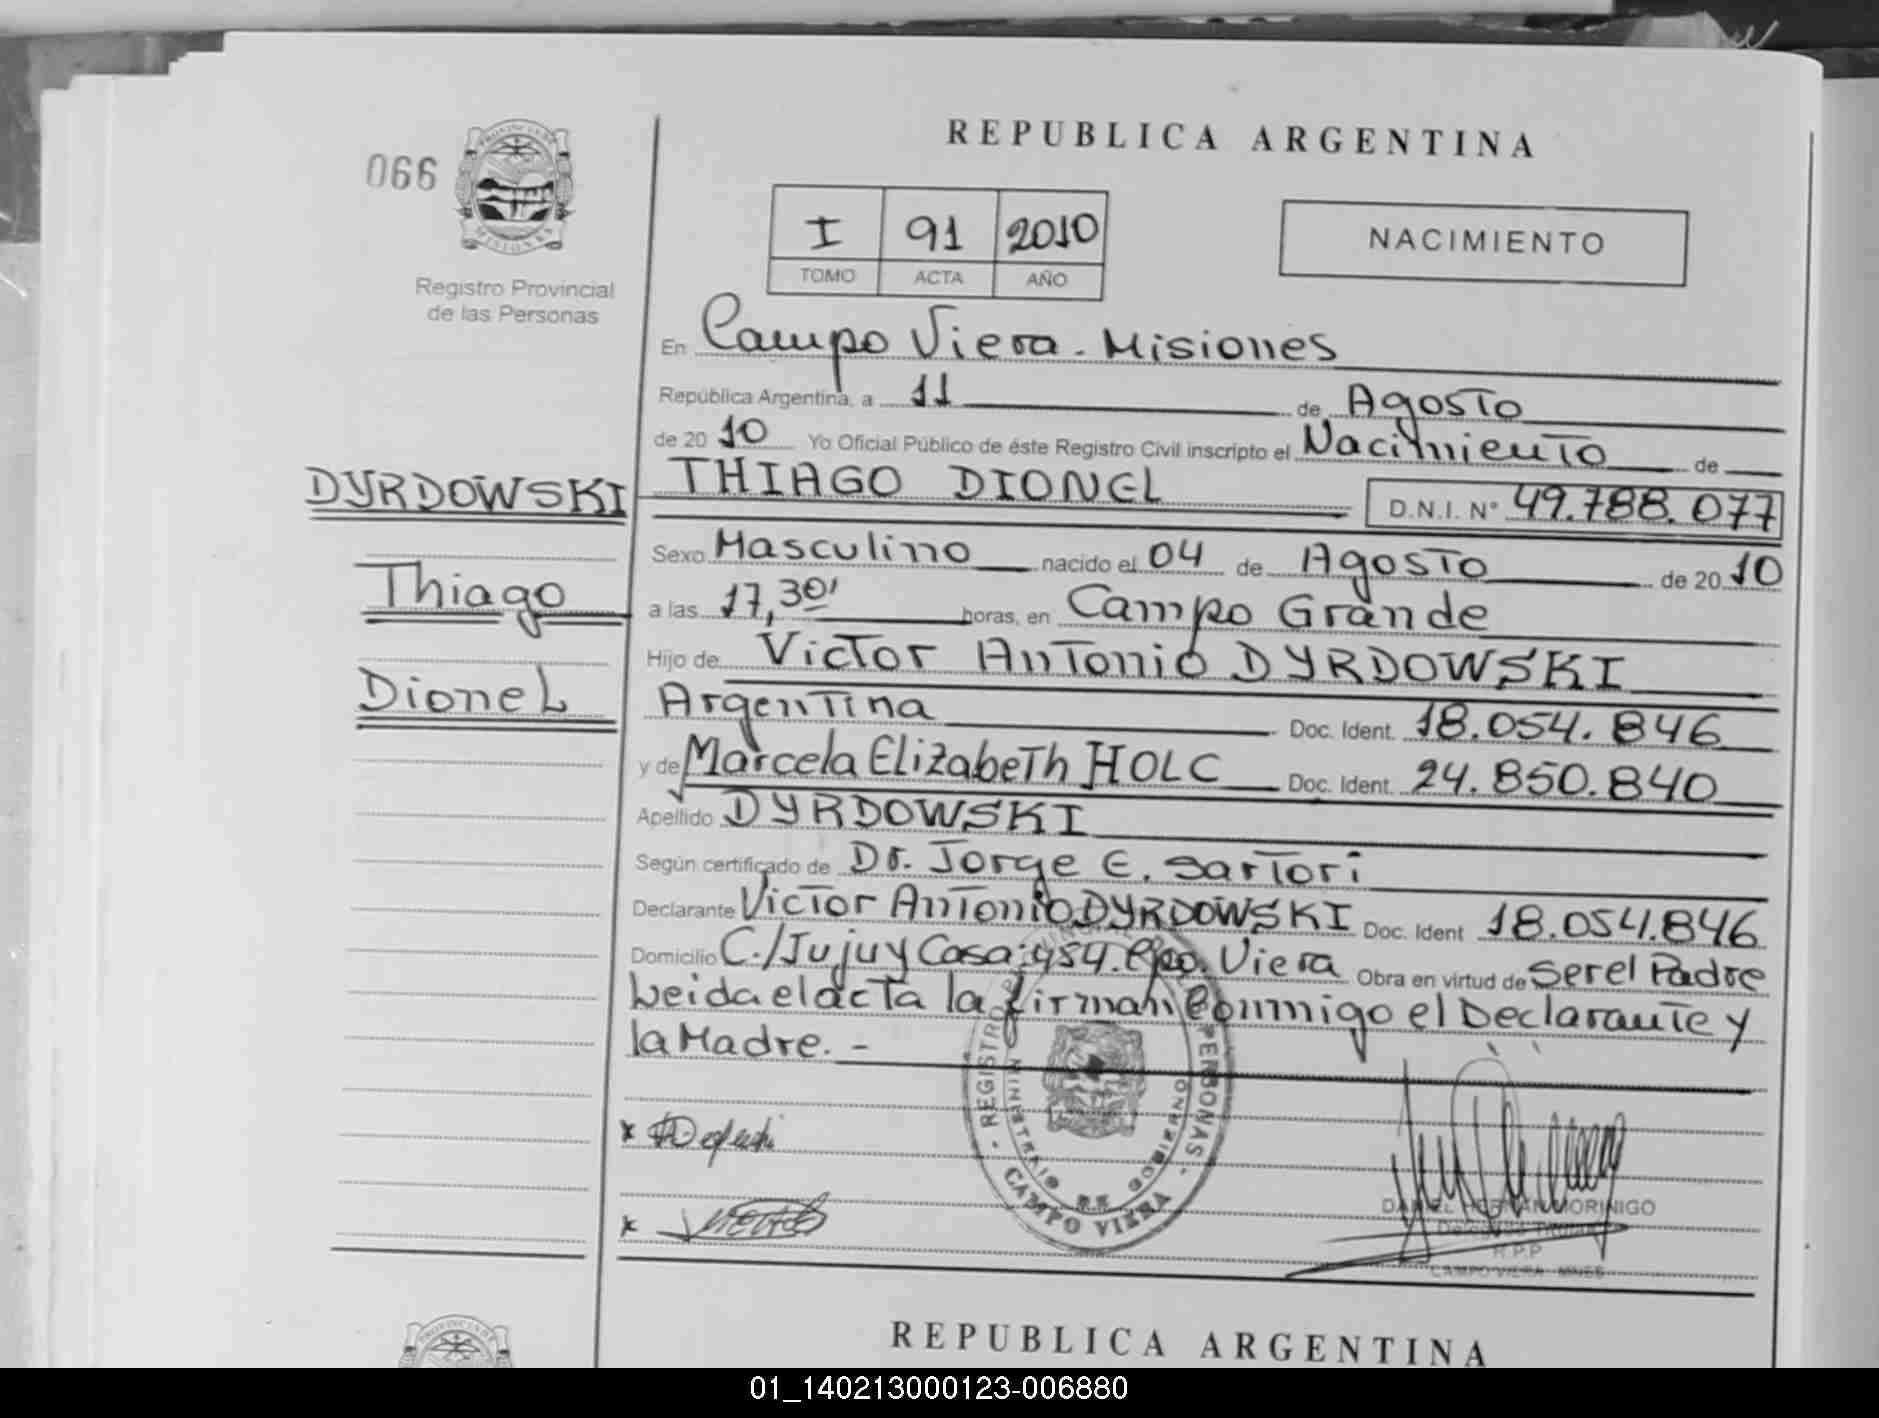 REPUBLICA ARGENTINA
066
PROVINCIA DE
MISIONES
Registro Provincial
de las Personas
I 91 2010
TOMO ACTA AÑO
NACIMIENTO
En Campo Viera - Misiones
República Argentina, a 11 de Agosto
de 20 10 Yo Oficial Público de éste Registro Civil inscripto el Nacimiento de
DYRDOWSKI
THIAGO DIONEL
D.N.I. N° 49.788.077
Sexo Masculino nacido el 04 de Agosto de 20 10
Thiago
a las 17,30' horas, en Campo Grande
Hijo de Victor Antonio DYRDOWSKI
Dionel
Argentina Doc. Ident. 18.054.846
y de Marcela Elizabeth HOLC Doc. Ident. 24.850.840
Apellido DYRDOWSKI
Según certificado de Dr. Jorge E. Sartori
Declarante Victor Antonio DYRDOWSKI Doc. Ident 18.054.846
Domicilio C./Jujuy Casa: 954. Cpo. Viera Obra en virtud de Ser el Padre
Leida el acta la firman Conmigo el Declarante y
la Madre. -
- REGISTRO PERSONAS -
CAMPO VIERA
DANIEL HERNAN MORINIGO
Delegado Titular
R.P.P
CAMPO VIERA MNES
REPUBLICA ARGENTINA
01_140213000123-006880